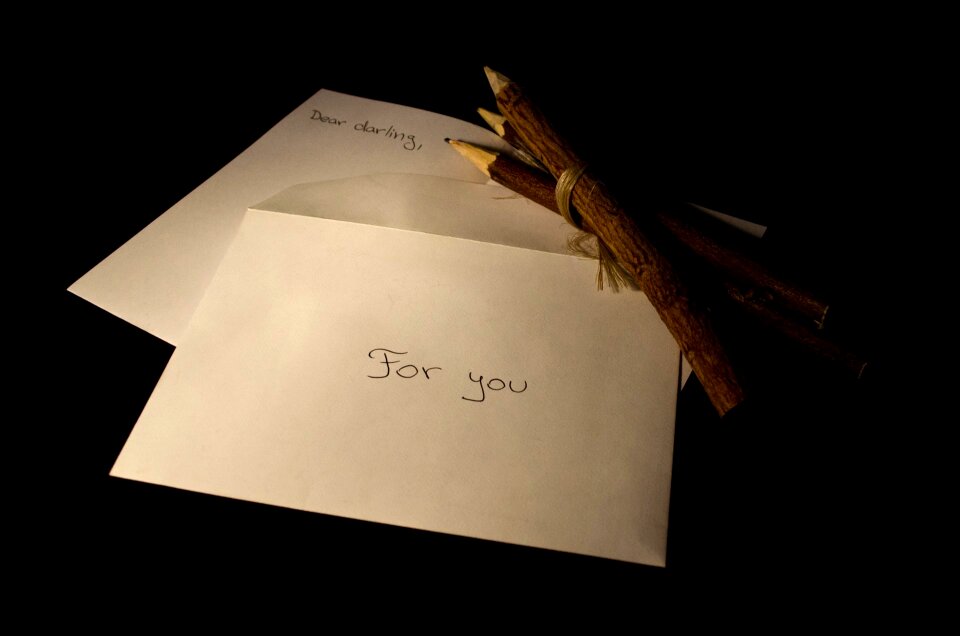 Dear darling,
For you